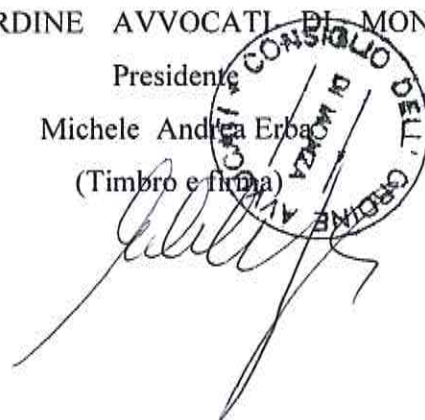 RDINE AVVOCATI DI MON
Presidente
Michele Andrea Erba
(Timbro e firma)
CONSIGLIO DELL' ORDINE AVVOCATI
DI MONZA